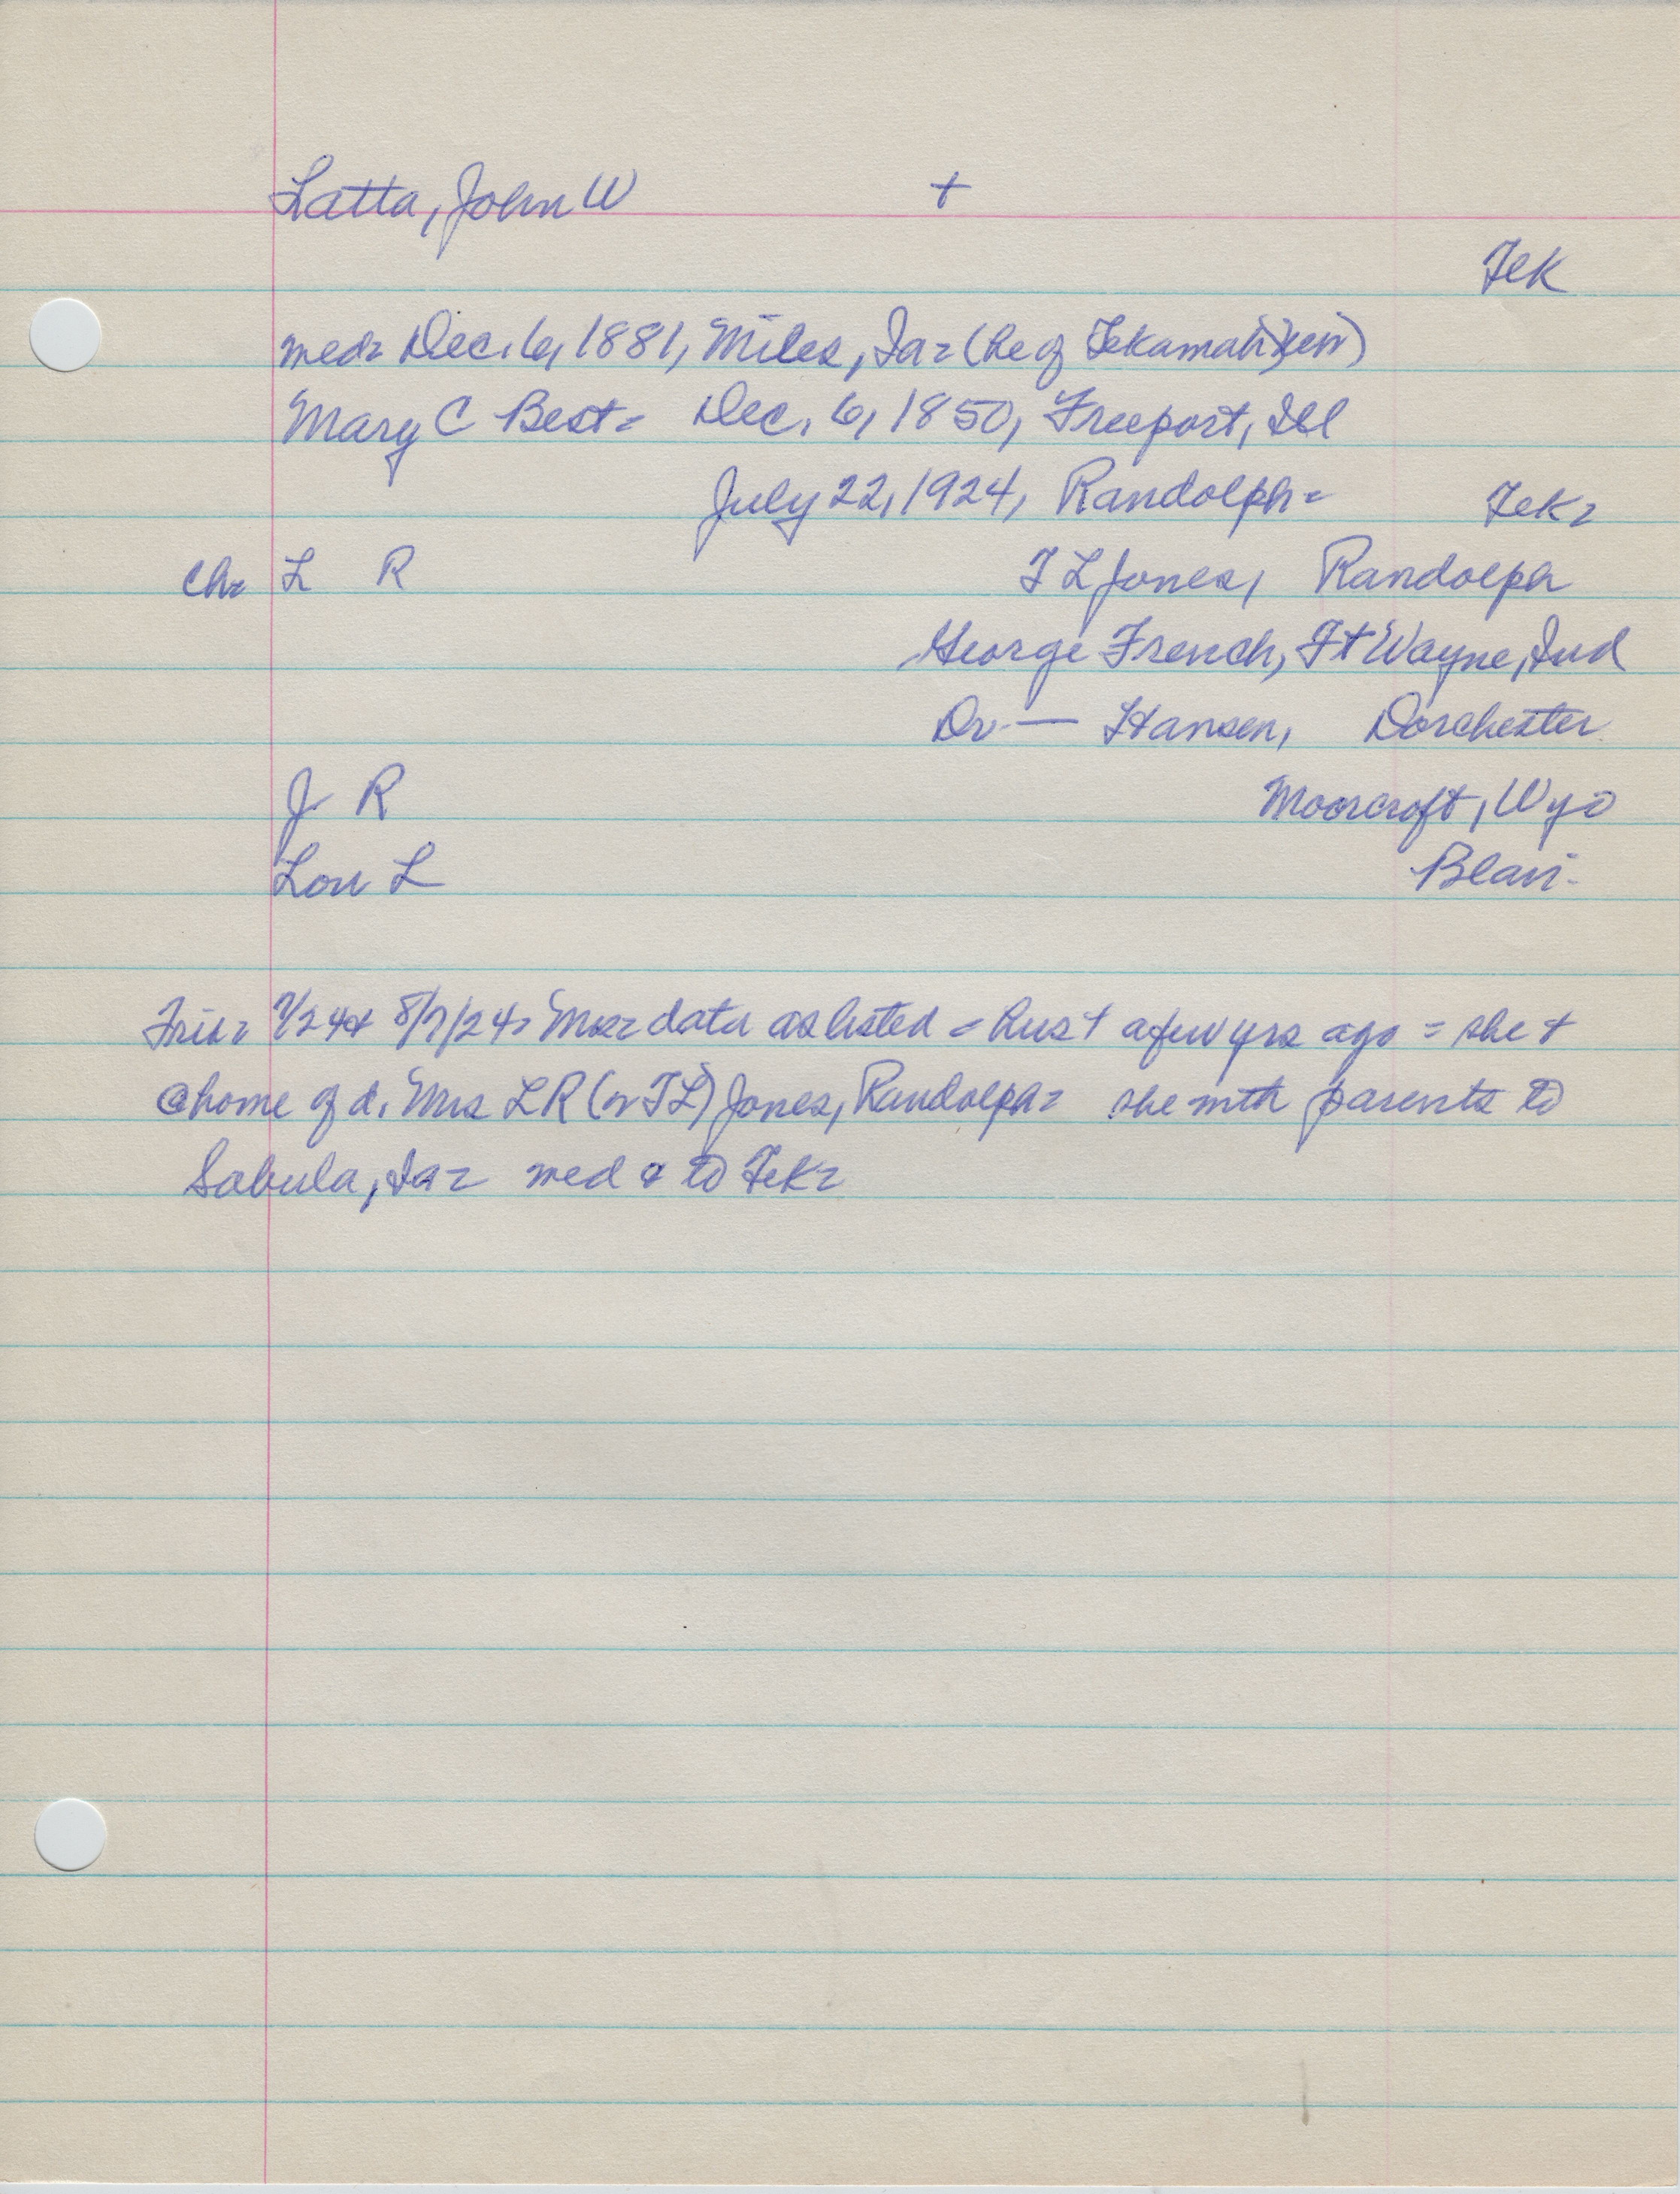 Latta, John W +
Tek
med= Dec. 6, 1881, Miles, Ia= (he of Tekamah)
Mary C Best= Dec. 6, 1850, Freeport, Ill
July 22, 1924, Randolph= Tek=
Ch= L R T L Jones, Randolph
George French, Ft Wayne, Ind
Dr — Hansen, Dorchester
J R Moorcroft, Wyo
Lou L Blair
8/7/24= Mrs= data as listed = hus + a few yrs ago = she +
@ home of d. Mrs L R (or T L) Jones, Randolph= she mth parents to
Sabula, Ia= med & to Tek=